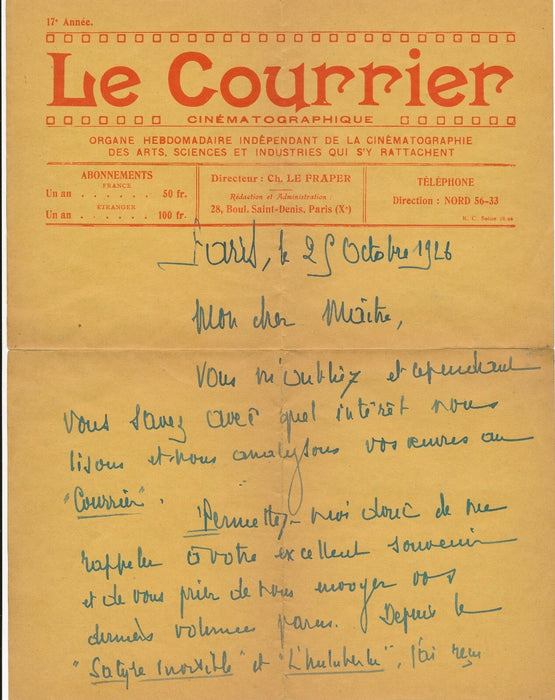 17e Année.
Le Courrier
CINÉMATOGRAPHIQUE
ORGANE HEBDOMADAIRE INDÉPENDANT DE LA CINÉMATOGRAPHIE
DES ARTS, SCIENCES ET INDUSTRIES QUI S'Y RATTACHENT
ABONNEMENTS
FRANCE
Un an . . . . . . 50 fr.
ÉTRANGER
Un an . . . . . . 100 fr.
Directeur : Ch. LE FRAPER
Rédaction et Administration :
28, Boul. Saint-Denis, Paris (Xe)
TÉLÉPHONE
Direction : NORD 56-33
R. C. Seine
Paris, le 25 Octobre 1926
Mon cher Maître,
Vous m'oubliez et cependant
vous savez avec quel intérêt nous
lisons et nous analysons vos œuvres au
"Courrier".
Permettez-moi donc de me
rappeler à votre excellent souvenir
et de vous prier de nous envoyer vos
derniers volumes parus. Depuis le
"Satyre Invisible" et "L'huluberlu", j'ai reçu